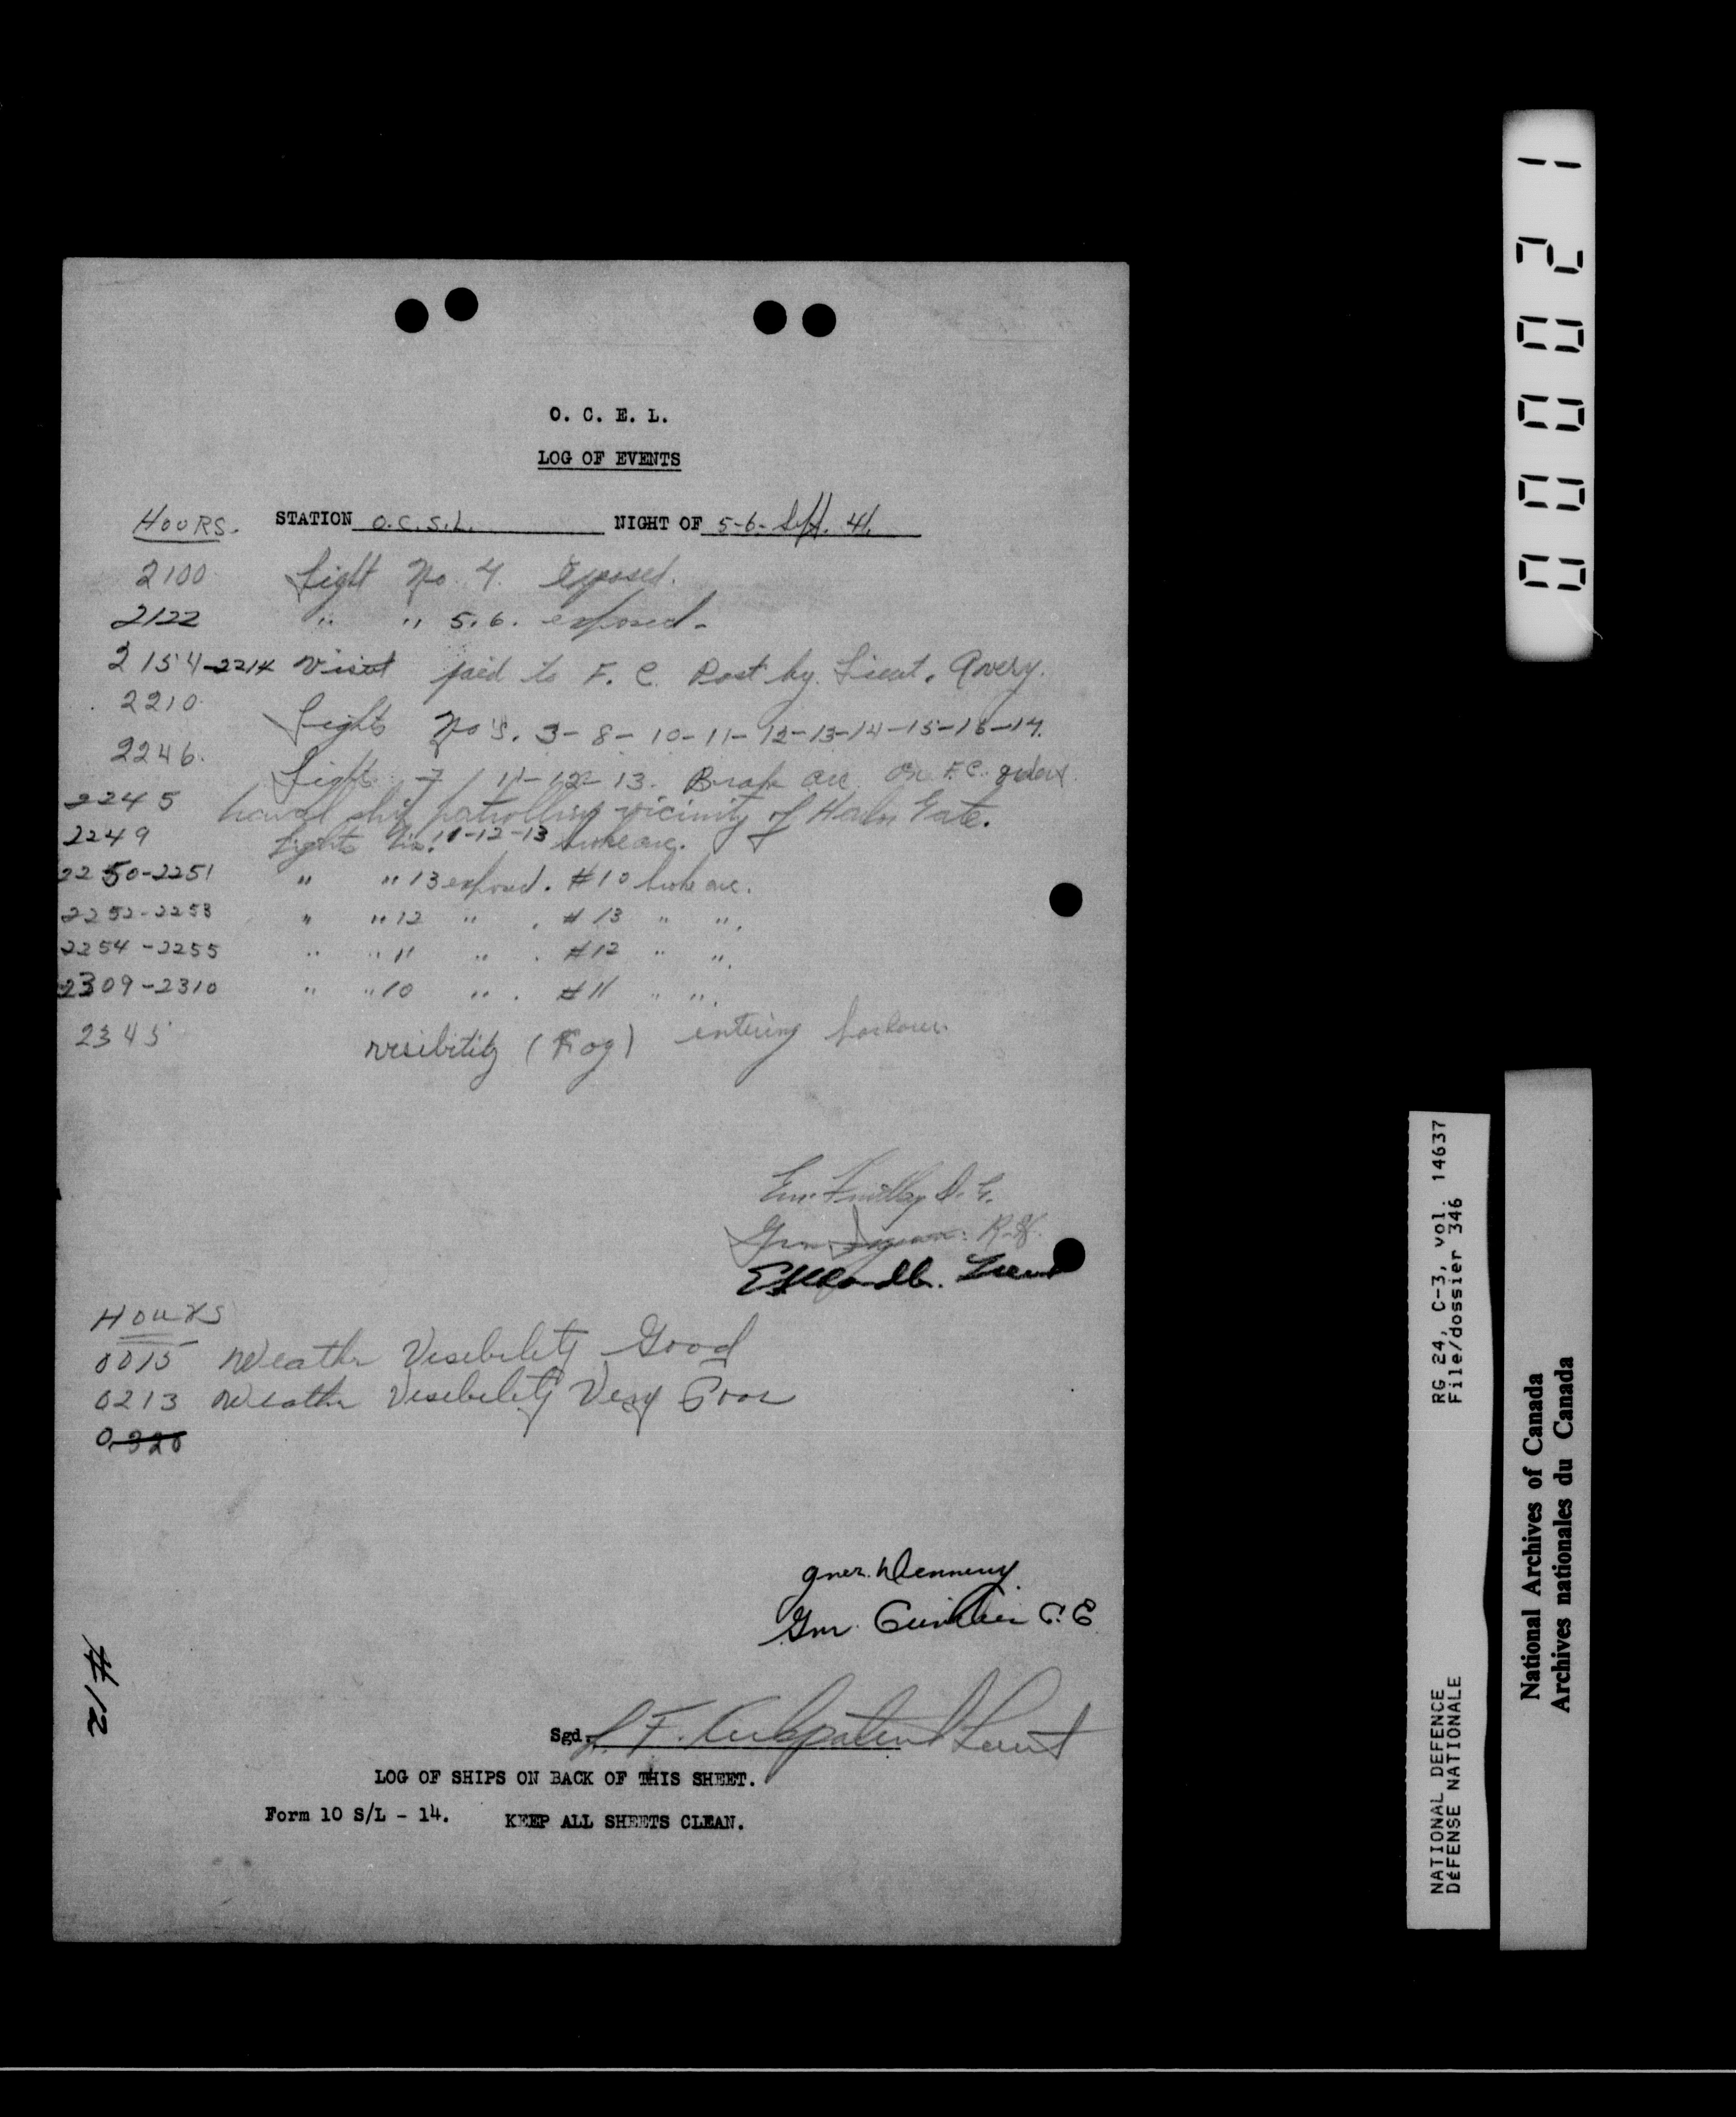 O. C. E. L.
LOG OF EVENTS
HOURS. STATION O.C.S.L. NIGHT OF 5-6- Sept. 41.
2100 Light No. 4. Exposed.
2122 " " 5.6. exposed.
2154-2214 Visit paid to F. C. Post by Lieut. Avery.
2210 Lights No's. 3-8-10-11-12-13-14-15-16-17.
2246. Light 11-12-13. Broke arc on F.C. orders.
2245 Naval ship patrolling vicinity of Gate.
2249 Lights No. 11-12-13 broke arc.
2250-2251 " " 13 exposed. #10 broke arc.
2252-2253 " " 12 " . #13 " ".
2254-2255 " " 11 " . #12 " ".
2309-2310 " " 10 " . #11 " ".
2345 visibility (Fog) entering harbour.
Gnr. Findlay D.
Gnr.
Lieut
HOURS
0015 Weather Visebility Good
0213 Weather Visebility Very Poor
0320
gner. Dennery
Gnr.
Sgd. F. Kirkpatrick Lieut
LOG OF SHIPS ON BACK OF THIS SHEET.
Form 10 S/L - 14. KEEP ALL SHEETS CLEAN.
#12
000021
RG 24, C-3, vol. 14637
File/dossier 346
NATIONAL DEFENCE
DÉFENSE NATIONALE
National Archives of Canada
Archives nationales du Canada